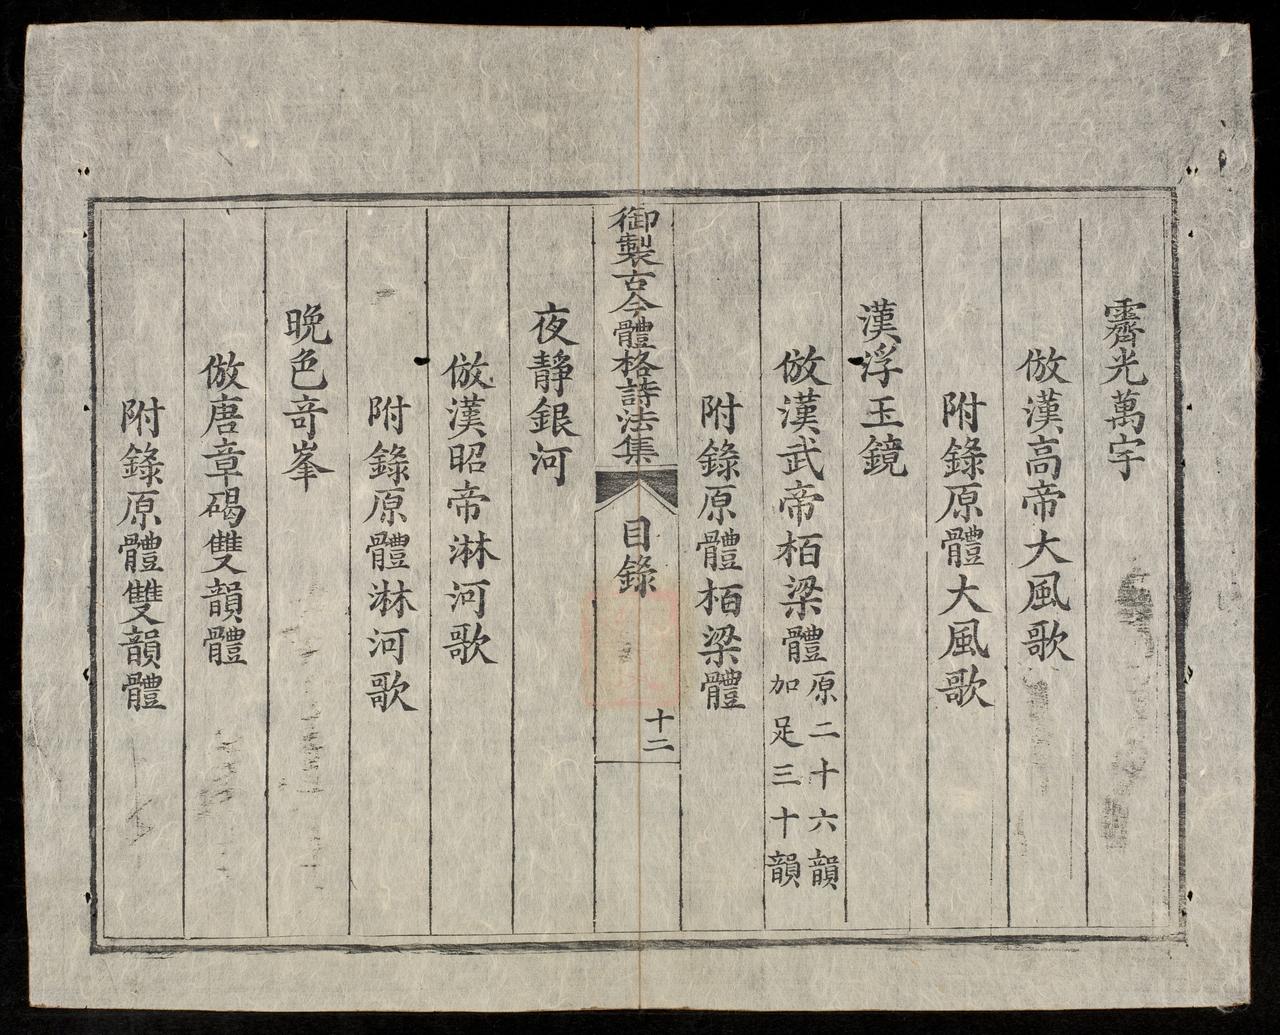 霽光萬宇
倣漢高帝大風歌
附錄原體大風歌
漢浮玉鏡
倣漢武帝栢梁體原二十六韻加足三十韻
附錄原體栢梁體
御製古今體格詩法集 目錄 十二
夜靜銀河
倣漢昭帝淋河歌
附錄原體淋河歌
晚色竒峯
倣唐章碣雙韻體
附錄原體雙韻體